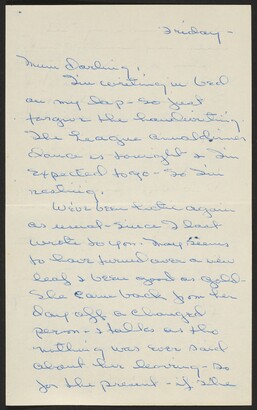 Friday -
Mum Darling,
I'm writing in bed
on my lap - so just
forgive the handwriting.
The League annual dinner
dance is tonight & I'm
expected to go - so I'm
resting.
We've been again
as usual - since I last
wrote to you. May seems
to have turned over a new
leaf & been good as gold -
She came back from her
day off a changed
person - & talks as tho
nothing was ever said
about her leaving - so
for the present - if she